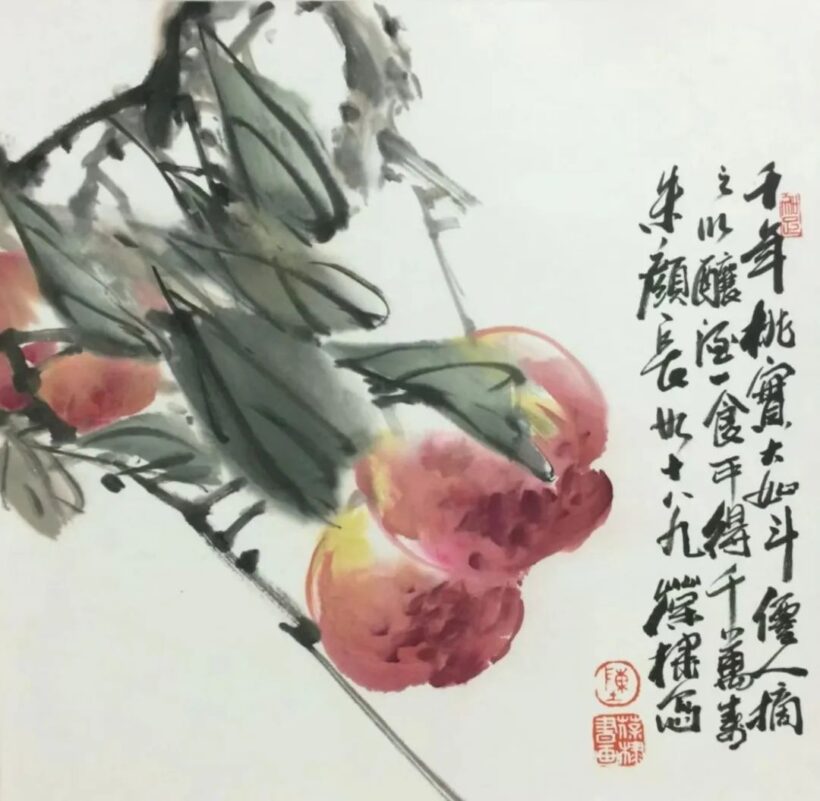 千年桃實大如斗僊人摘
之以釀酒一食可得千萬壽
朱顏長如十八九 葆棣寫
陳
葆棣
書畫